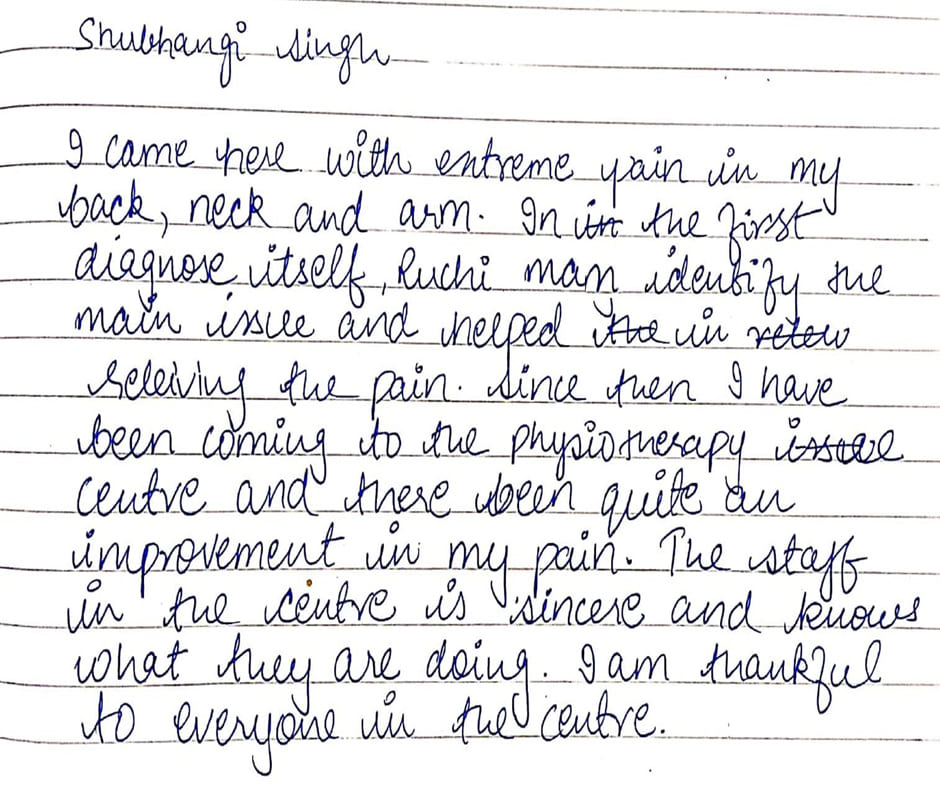 Shubhangi singh
I came here with extreme pain in my
back, neck and arm. In the first
diagnose itself, Ruchi mam identify the
main issue and helped in
releiving the pain. Since then I have
been coming to the physiotherapy
centre and there been quite an
improvement in my pain. The staff
in the centre is sincere and knows
what they are doing. I am thankful
to everyone in the centre.